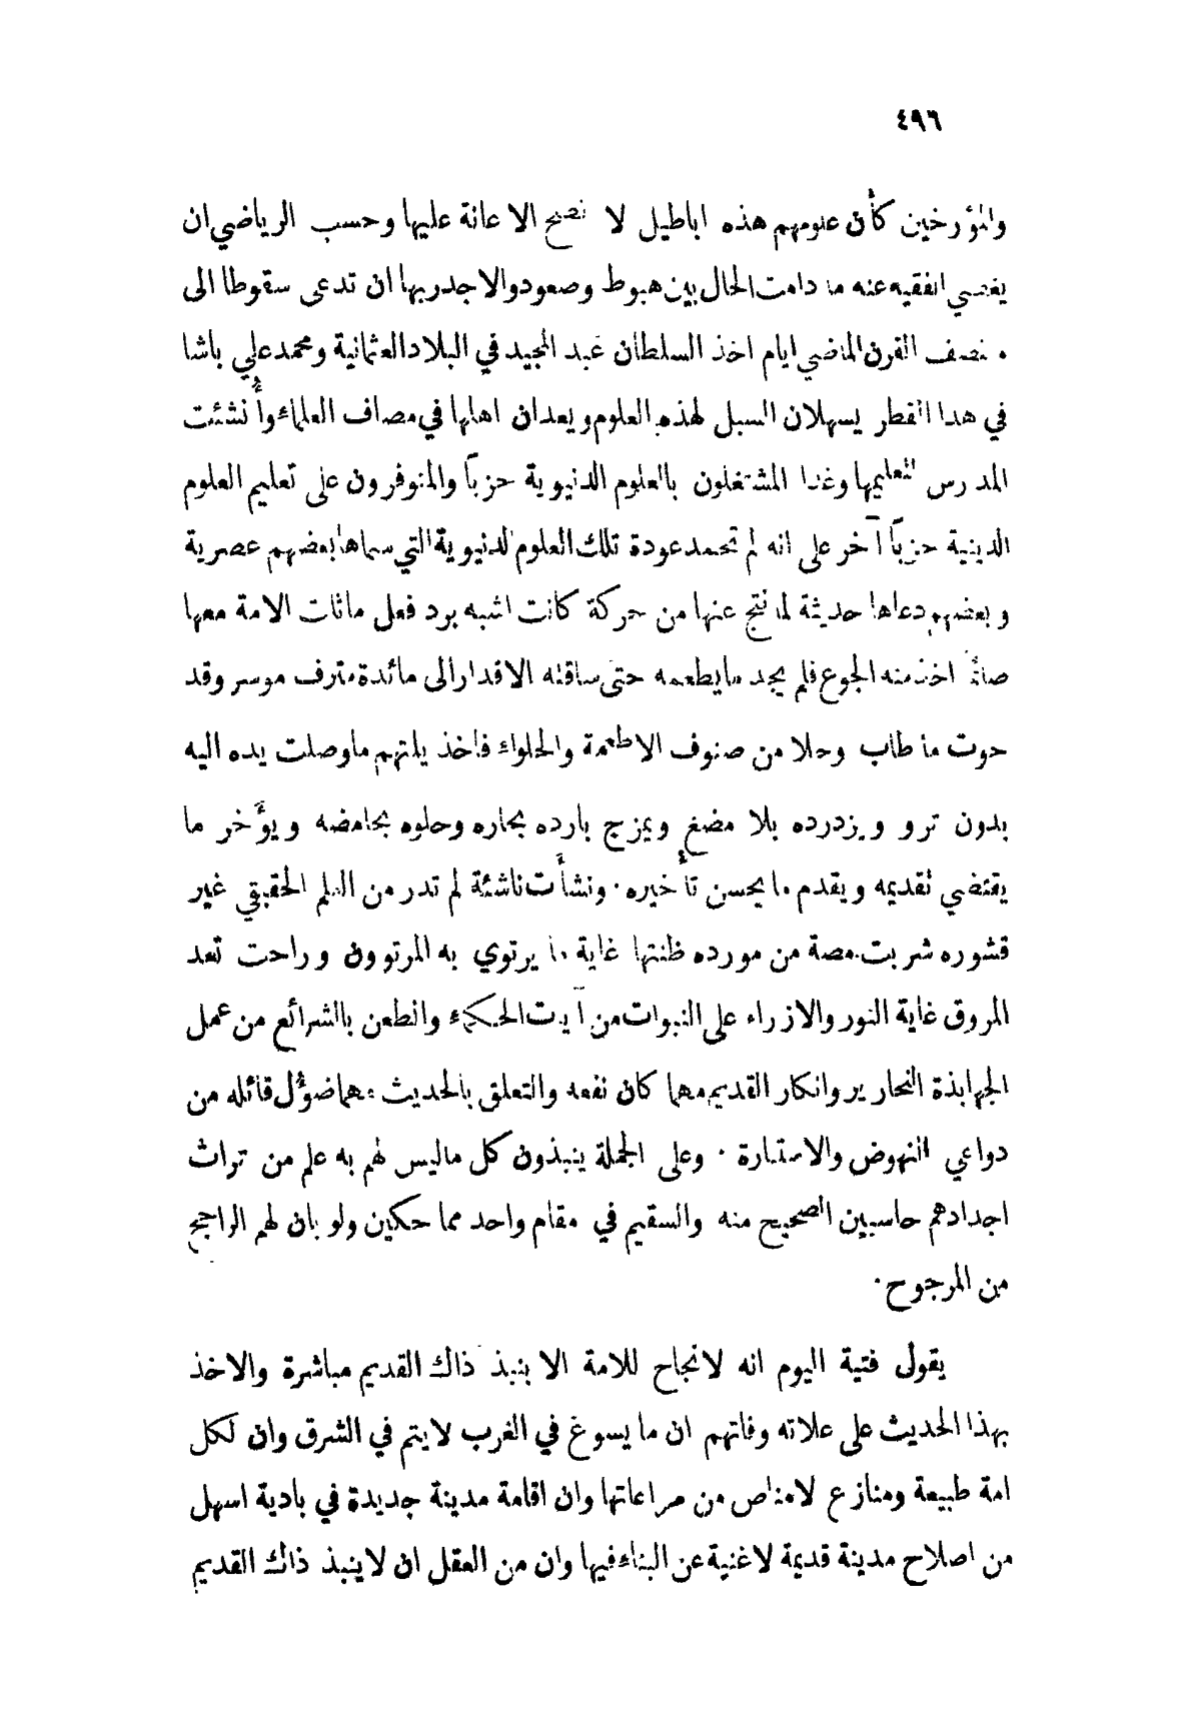 ٤٩٦
والمؤرخين كأن علومهم هذه اباطيل لا تصح الاعانة عليها وحسب الرياضي ان
يغضي الفقيه عنه ما دامت الحال بين هبوط وصعود والاجدر بها ان تدعى سقوطا الى
منتصف القرن الماضي ايام اخذ السلطان عبد المجيد في البلاد العثمانية ومحمد علي باشا
في هذا القطر يسهلان السبل لهذه العلوم ويعدان اهلها في مصاف العلماء وأُنشئت
المدارس لتعليمها وغدا المشتغلون بالعلوم الدنيوية حزباً والمتوفرون على تعليم العلوم
الدينية حزباً آخر على انه لم تحمد عودة تلك العلوم الدنيوية التي سماها بعضهم عصرية
وبعضهم دعاها حديثة لما نتج عنها من حركة كانت اشبه برد فعل ماثات الامة معها
اخذ منه الجوع فلم يجد ما يطعمه حتى ساقته الاقدار الى مائدة مترف موسر وقد
حوت ما طاب وحلا من صنوف الاطعمة والحلواء فاخذ يلتهم ما وصلت يده اليه
بدون ترو ويزدرده بلا مضغ ويمزج بارده بحاره وحلوه بحامضه ويؤَخر ما
يقتضي تقديمه ويقدم ما يحسن تأْخيره · ونشأَت ناشئة لم تدر من العلم الحقيقي غير
قشوره شربت مصة من مورده ظنتها غاية ما يرتوي به المرتوون وراحت تعد
المروق غاية النور والازراء على النبوات من آيات الحكماء والطعن بالشرائع من عمل
الجهابذة النحارير وانكار القديم مهما كان نفعه والتعلق بالحديث مهما ضؤُل قائله من
دواعي النهوض والاستنارة · وعلى الجملة ينبذون كل ما ليس لهم به علم من تراث
اجدادهم حاسبين الصحيح منه والسقيم في مقام واحد مما حكين ولو بان لهم الراجح
من المرجوح ·
يقول فتية اليوم انه لا نجاح للامة الا بنبذ ذاك القديم مباشرة والاخذ
بهذا الحديث على علاته وفاتهم ان ما يسوغ في الغرب لا يتم في الشرق وان لكل
امة طبيعة ومنازع لا مناص من مراعاتها وان اقامة مدينة جديدة في بادية اسهل
من اصلاح مدينة قديمة لا غنية عن البناء فيها وان من العقل ان لا ينبذ ذاك القديم